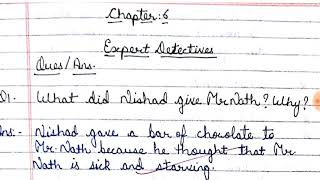 Chapter:6
Expert Detectives
Ques/Ans.
Q1. What did Nishad give Mr. Nath? Why?
Ans:- Nishad gave a bar of chocolate to
Mr. Nath because he thought that Mr
Nath is sick and starving.